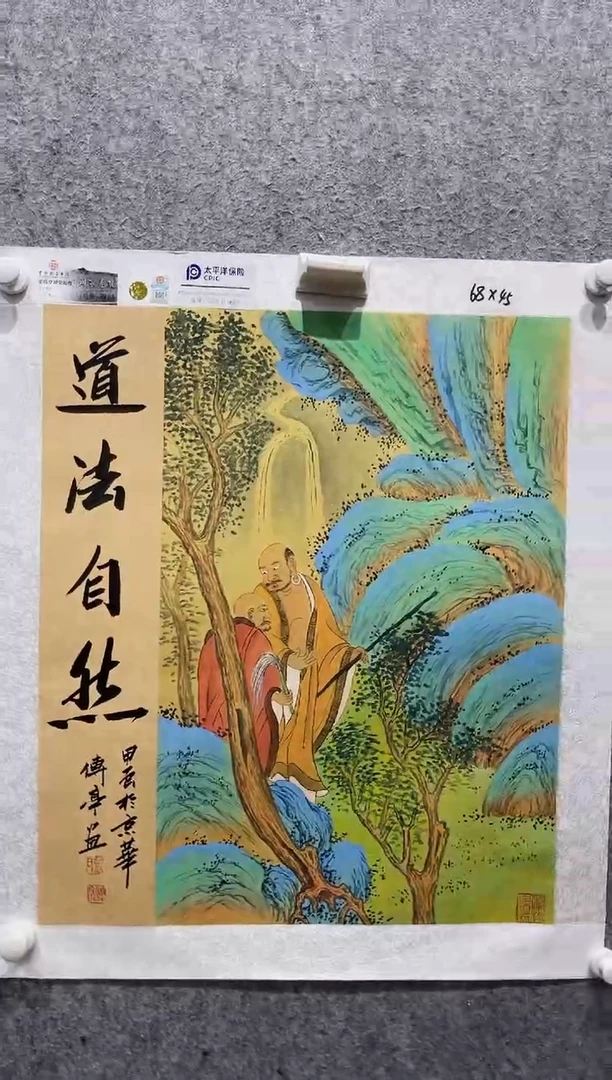 太平洋保险
CPIC
68×45
道法自然
甲辰於京華
傅亭画